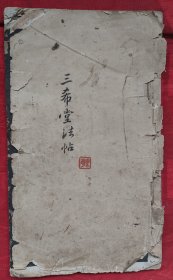 三希堂法帖